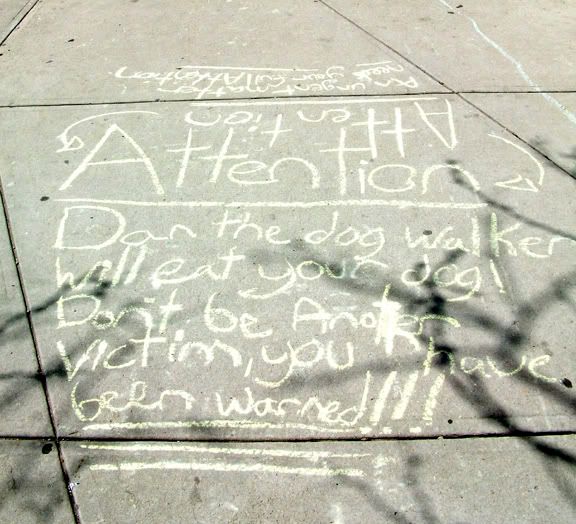 An urgent matter
need your full Attention
Atten
tion
Attention
Dan the dog walker
will eat your dog!
Don't be Another
victim, you have
been warned!!!!